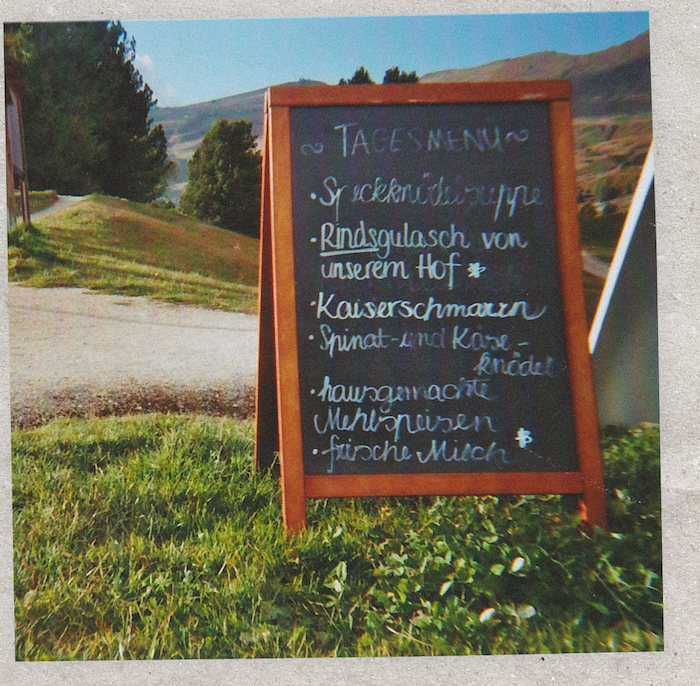 ~ TAGESMENÜ ~
· Speckknödelsuppe
· Rindsgulasch von
unserem Hof *
· Kaiserschmarrn
· Spinat-und Käse-
knödel
· hausgemachte
Mehlspeisen
· frische Milch